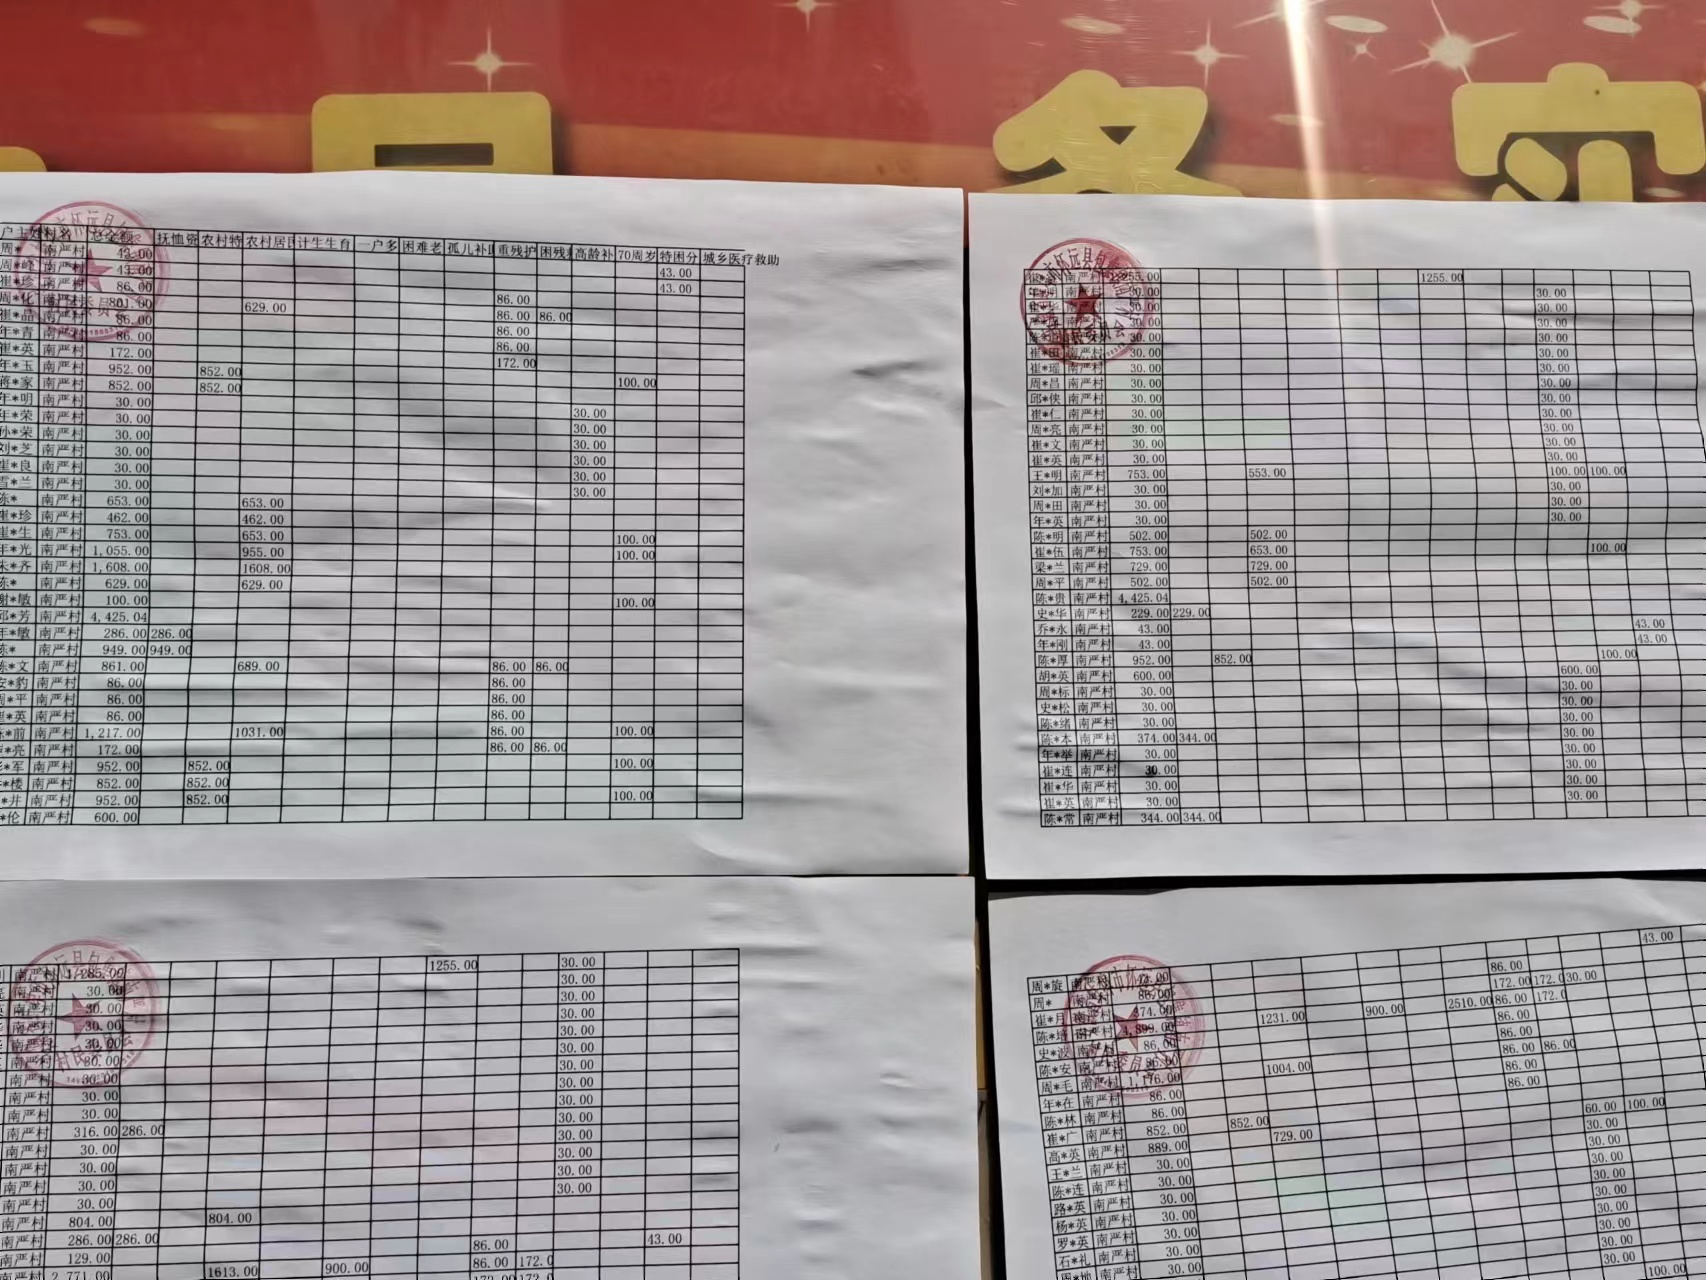 务实
户主姓名 村名 总金额 抚恤资 农村特 农村居民 计生生育 一户多 困难老 孤儿补 重残护 困残 高龄补 70周岁 特困分 城乡医疗救助
周* 南严村 43.00 43.00
周*峰 南严村 43.00 43.00
崔*珍 南严村 86.00 86.00
周*化 南严村 801.00 629.00 86.00 86.00
崔*晶 南严村 86.00 86.00
年*青 南严村 86.00 86.00
崔*英 南严村 172.00 172.00
年*玉 南严村 952.00 852.00 100.00
蒋*家 南严村 852.00 852.00
年*明 南严村 30.00 30.00
年*荣 南严村 30.00 30.00
孙*荣 南严村 30.00 30.00
刘*芝 南严村 30.00 30.00
崔*良 南严村 30.00 30.00
*兰 南严村 30.00 30.00
陈* 南严村 653.00 653.00
崔*珍 南严村 462.00 462.00
崔*生 南严村 753.00 653.00 100.00
年*光 南严村 1,055.00 955.00 100.00
*齐 南严村 1,608.00 1608.00
陈* 南严村 629.00 629.00
谢*敏 南严村 100.00 100.00
邱*芳 南严村 4,425.04
年*敏 南严村 286.00 286.00
陈* 南严村 949.00 949.00
陈*文 南严村 861.00 689.00 86.00 86.00
安*豹 南严村 86.00 86.00
周*平 南严村 86.00 86.00
崔*英 南严村 86.00 86.00
*前 南严村 1,217.00 1031.00 86.00 100.00
*亮 南严村 172.00 86.00 86.00
*军 南严村 952.00 852.00 100.00
*楼 南严村 852.00 852.00
*井 南严村 952.00 852.00 100.00
*伦 南严村 600.00
崔* 南严村 1255.00 1255.00
年*明 南严村 30.00 30.00
崔*华 南严村 30.00 30.00
严* 南严村 30.00 30.00
陈* 南严村 30.00 30.00
崔*田 南严村 30.00 30.00
崔*瑶 南严村 30.00 30.00
周*昌 南严村 30.00 30.00
邱*侠 南严村 30.00 30.00
崔*仁 南严村 30.00 30.00
周*亮 南严村 30.00 30.00
崔*文 南严村 30.00 30.00
崔*英 南严村 30.00 30.00
王*明 南严村 753.00 553.00 100.00 100.00
刘*加 南严村 30.00 30.00
周*田 南严村 30.00 30.00
年*英 南严村 30.00 30.00
陈*明 南严村 502.00 502.00
崔*伍 南严村 753.00 653.00 100.00
梁*兰 南严村 729.00 729.00
周*平 南严村 502.00 502.00
陈*贵 南严村 4,425.04
史*华 南严村 229.00 229.00
乔*永 南严村 43.00 43.00
年*刚 南严村 43.00 43.00
陈*厚 南严村 952.00 852.00 100.00
胡*英 南严村 600.00 600.00
周*标 南严村 30.00 30.00
史*松 南严村 30.00 30.00
陈*绪 南严村 30.00 30.00
陈*本 南严村 374.00 344.00 30.00
年*举 南严村 30.00 30.00
崔*连 南严村 30.00 30.00
崔*华 南严村 30.00 30.00
崔*英 南严村 30.00 30.00
陈*常 南严村 344.00 344.00
南严村 1,285.00 1255.00 30.00
南严村 30.00 30.00
南严村 30.00 30.00
南严村 30.00 30.00
南严村 30.00 30.00
南严村 30.00 30.00
南严村 30.00 30.00
南严村 30.00 30.00
南严村 30.00 30.00
南严村 316.00 286.00 30.00
南严村 30.00 30.00
南严村 30.00 30.00
南严村 30.00 30.00
南严村 30.00 30.00
南严村 804.00 804.00
南严村 286.00 286.00
南严村 129.00 86.00 43.00
南严村 2,771.00 1613.00 900.00 86.00 172.0
172.00 172.0
周*旋 南严村 43.00 43.00
周* 南严村 86.00 86.00
崔*月 南严村 374.00 172.00 172.0 30.00
陈*培 南严村 4,899.00 1231.00 900.00 2510.00 86.00 172.0
史*波 南严村 86.00 86.00
陈*安 南严村 86.00 86.00
周*毛 南严村 1,176.00 1004.00 86.00 86.00
年*在 南严村 86.00 86.00
陈*林 南严村 86.00 86.00
崔*广 南严村 852.00 852.00
高*英 南严村 889.00 729.00 60.00 100.00
王*兰 南严村 30.00 30.00
陈*连 南严村 30.00 30.00
路*英 南严村 30.00 30.00
杨*英 南严村 30.00 30.00
罗*英 南严村 30.00 30.00
石*礼 南严村 30.00 30.00
周*地 南严村 30.00 30.00
100.00